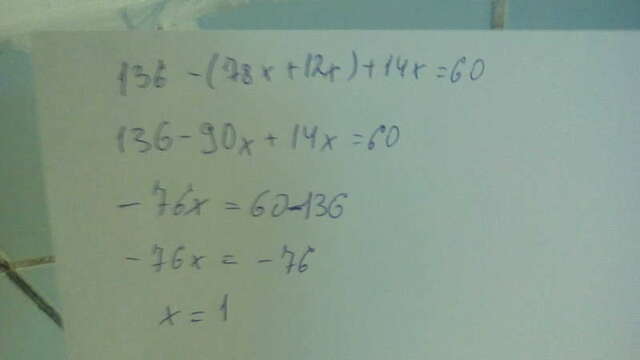 136 - (78x + 12x) + 14x = 60
136 - 90x + 14x = 60
- 76x = 60 - 136
- 76x = - 76
x = 1